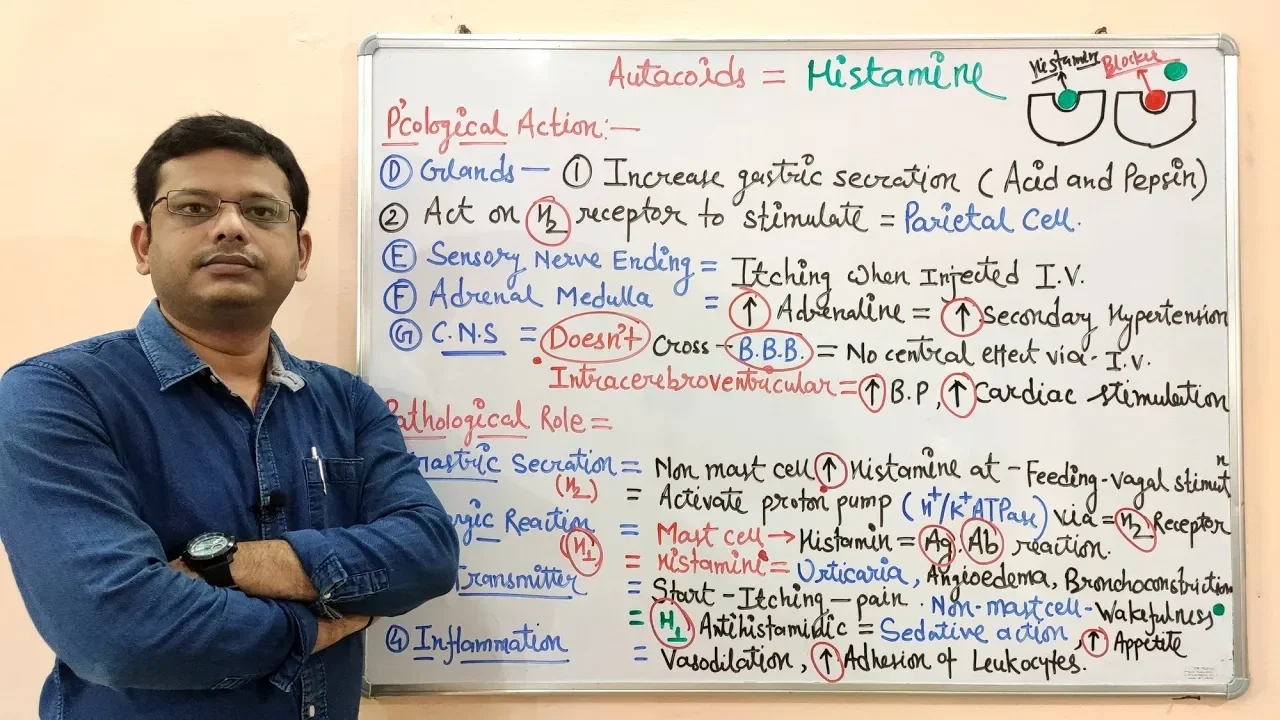 Autacoids = Histamine
Histamine Blocker
P'cological Action:-
D Glands - 1 Increase gastric secration (Acid and Pepsin)
2 Act on H2 receptor to stimulate = Parietal Cell.
E Sensory Nerve Ending = Itching when Injected I.V.
F Adrenal Medulla = ↑ Adrenaline = ↑ Secondary Hypertension
G C.N.S = Doesn't Cross - B.B.B. = No central effect via- I.V.
Intracerebroventricular = ↑ B.P, ↑ Cardiac stimulation
Pathological Role =
Gastric Secration = Non mast cell ↑ Histamine at - Feeding-vagal stimutn
(H2) = Activate proton pump (H+/K+ATPase) via = H2 Receptor
ergic Reaction = Mast cell → Histamin = Ag. Ab reaction.
H1 = Histamine = Urticaria, Angioedema, Bronchoconstriction
Transmitter = Start - Itching - pain. Non-mast cell - Wakefulness
= H1 Antihistamidic = Sedative action, ↑ Appetite
4 Inflammation = Vasodilation, ↑ Adhesion of Leukocytes.